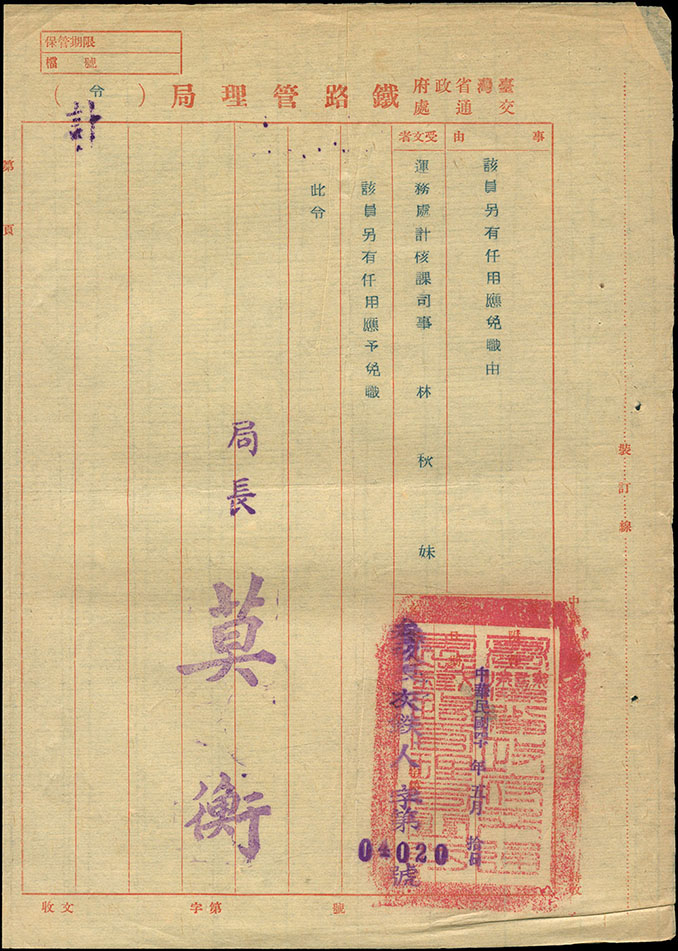 保管期限
檔 號
臺灣省政府交通處鐵路管理局（令）
計
事由
該員另有任用應免職由
受文者
運務處計核課司事 林秋妹
該員另有任用應予免職
此令
局長 莫衡
中華民國四十年五月拾日
人字第04020號
裝訂線
第 頁
收文 字第 號